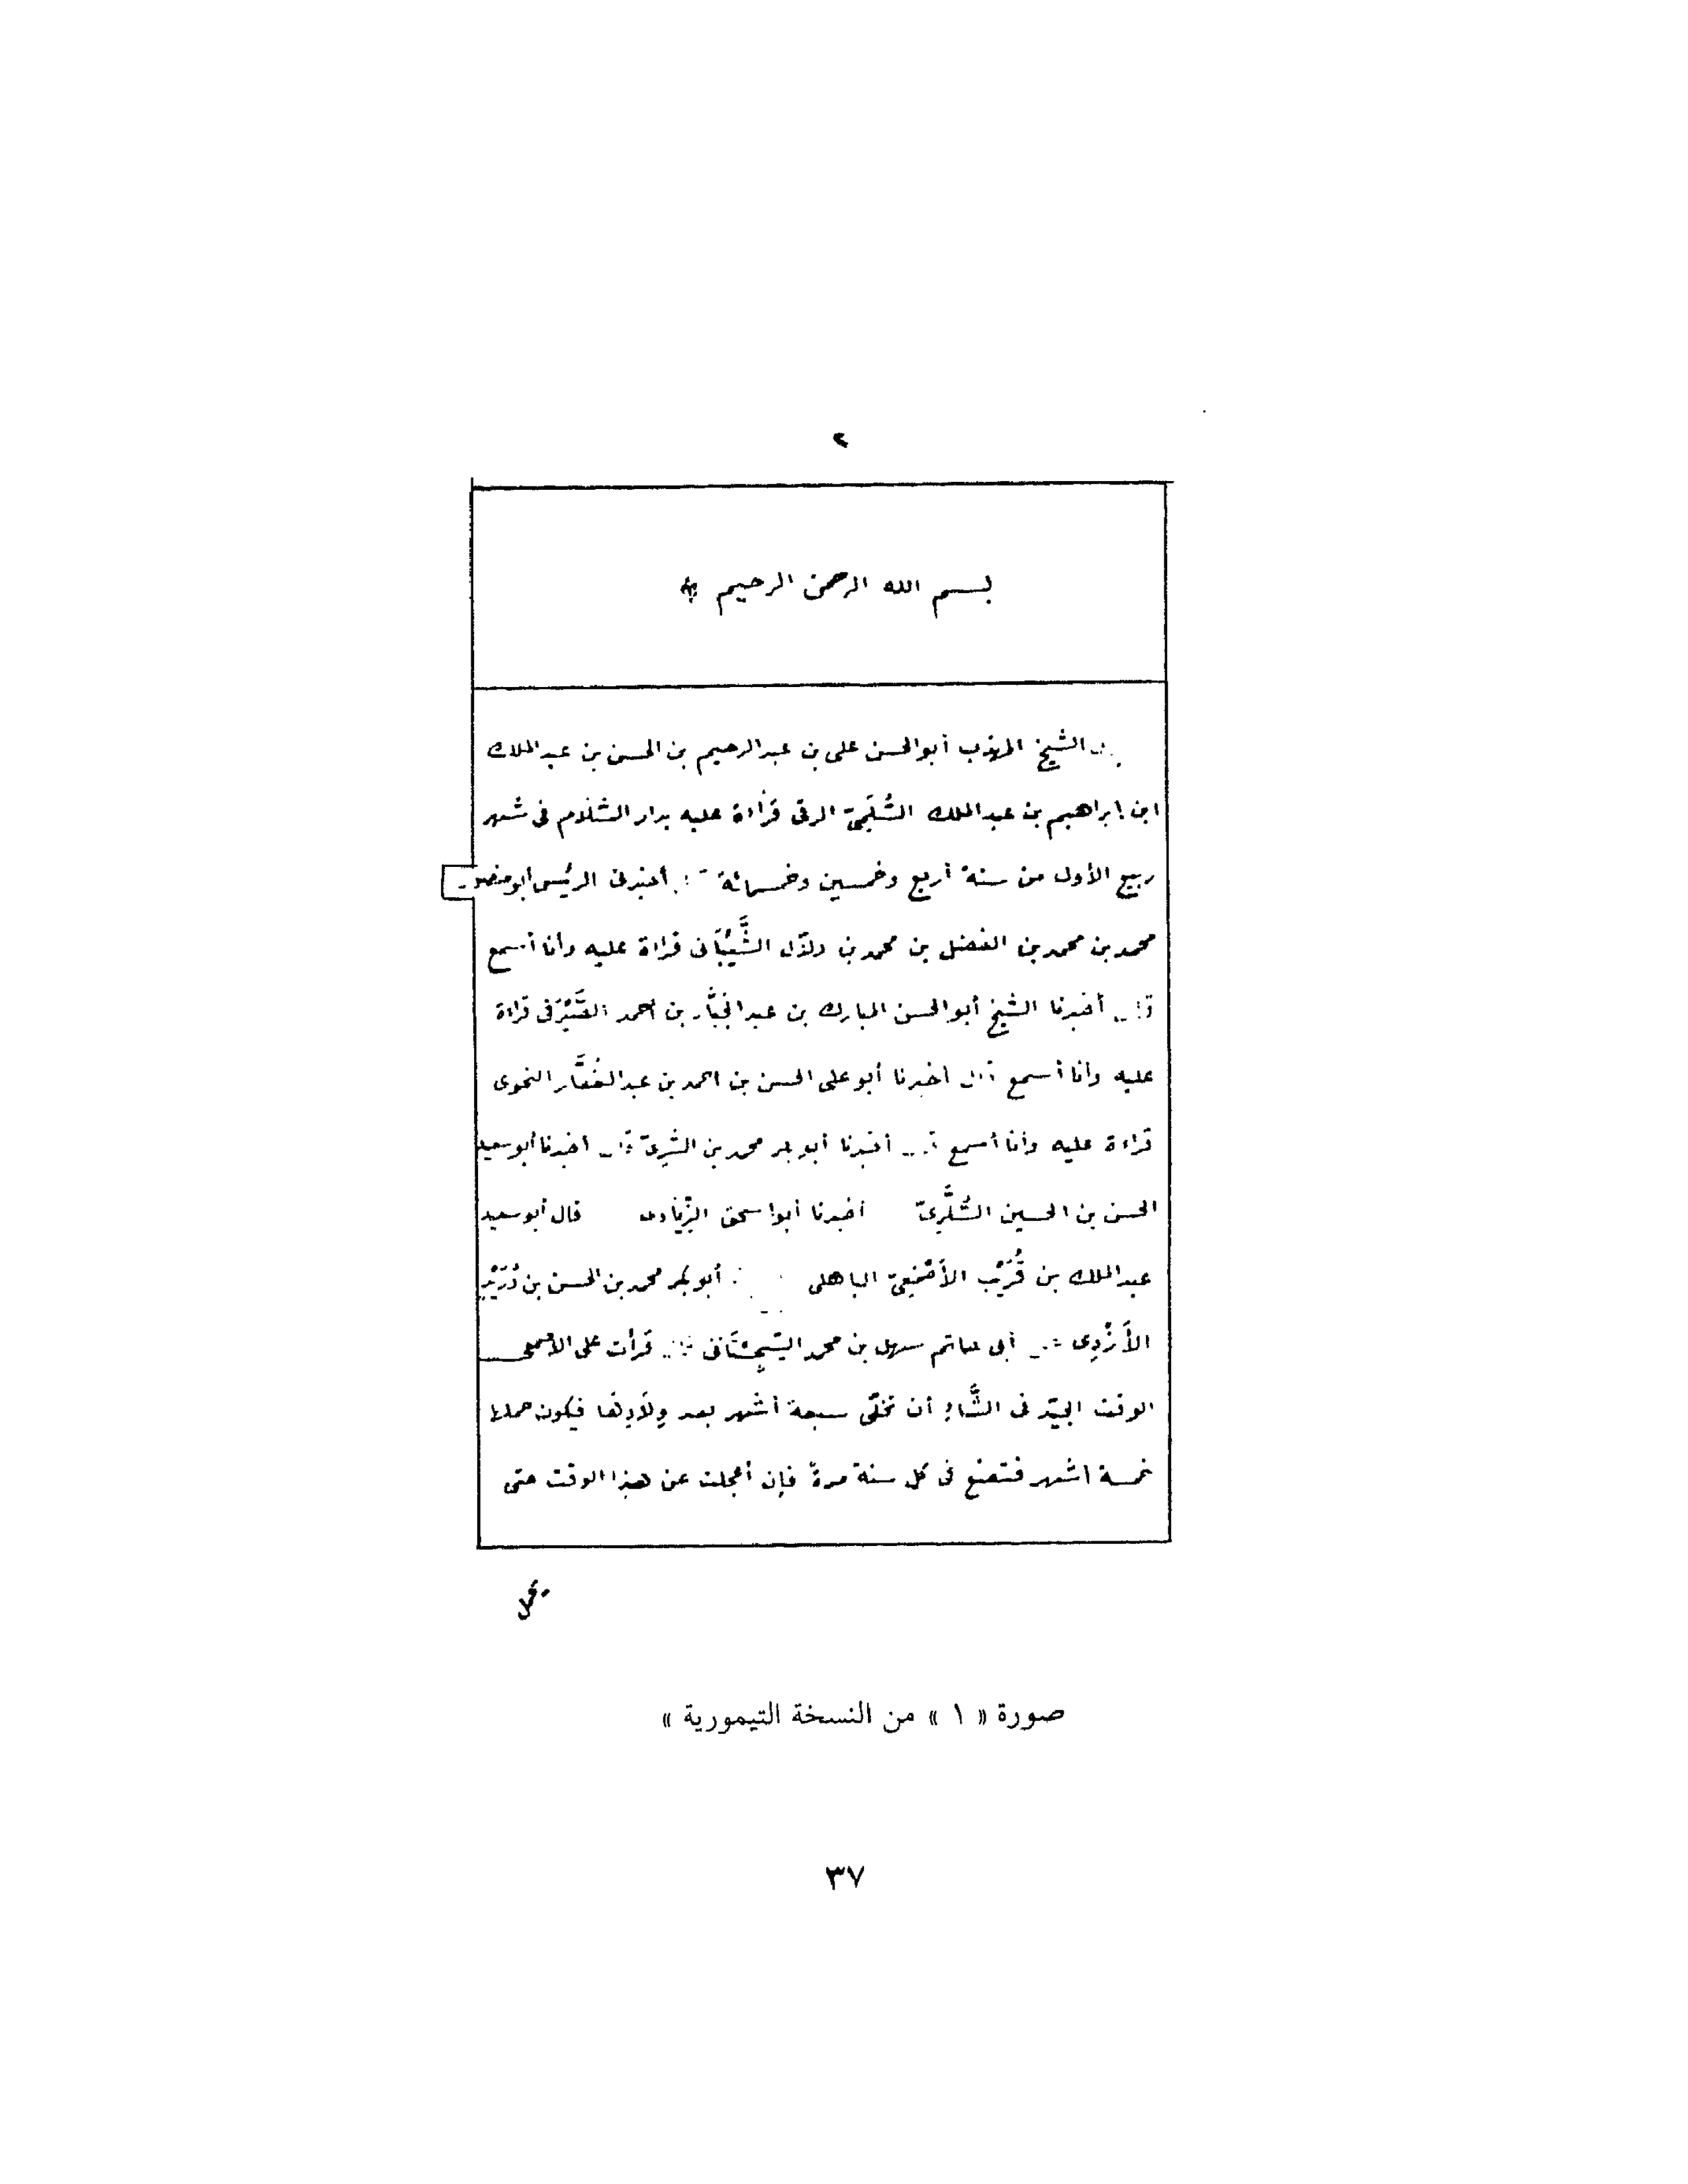 ٢
بسم الله الرحمن الرحيم
الشيخ المهذب أبوالحسن على بن عبدالرحيم بن الحسن بن عبدالملك
ابن إبراهيم بن عبدالملك السُّلَمِىّ الرقى قراءة عليه بدار السَّلام فى شهر
ربيع الأول من سنة أربع وخمسين وخمسمائة أخبرنى الرئيس أبو منصور
محمد بن محمد بن الفضل بن محمد بن دلاّل الشَّيْبَانى قراءة عليه وأنا أسمع
أخبرنا الشيخ أبوالحسن المبارك بن عبدالجَبَّار بن أحمد الصَّيْرَفى قراءة
عليه وأنا أسمع قال اخبرنا أبو على الحسن بن احمد بن عبدالغَفَّار النحوى
قراءة عليه وأنا أسمع أخبرنا أبو بكر محمد بن السَّرِىّ قال اخبرنا أبو سعيد
الحسن بن الحسين السُّكَّرِىّ أخبرنا أبو اسحق الزِّيَادى قال أبو سعيد
عبدالملك بن قُرَيْب الأَصْمَعِىّ الباهلى أبو بكر محمد بن الحسن بن دُرَيْدٍ
الأَزْدِى أبى حاتم سهل بن محمد السِّجِسْتَانى قال قرأت على الأصمعى
الوقت الجيّد فى الشَّاءِ أن تخلّى سبعة أشهر بعد وِلاَدِهَا فيكون حملها
خمسة اشهر فتضع فى كل سنة مرة فإن أعجلت عن هذا الوقت حتى
صورة « ١ » من النسخة التيمورية »
٣٧